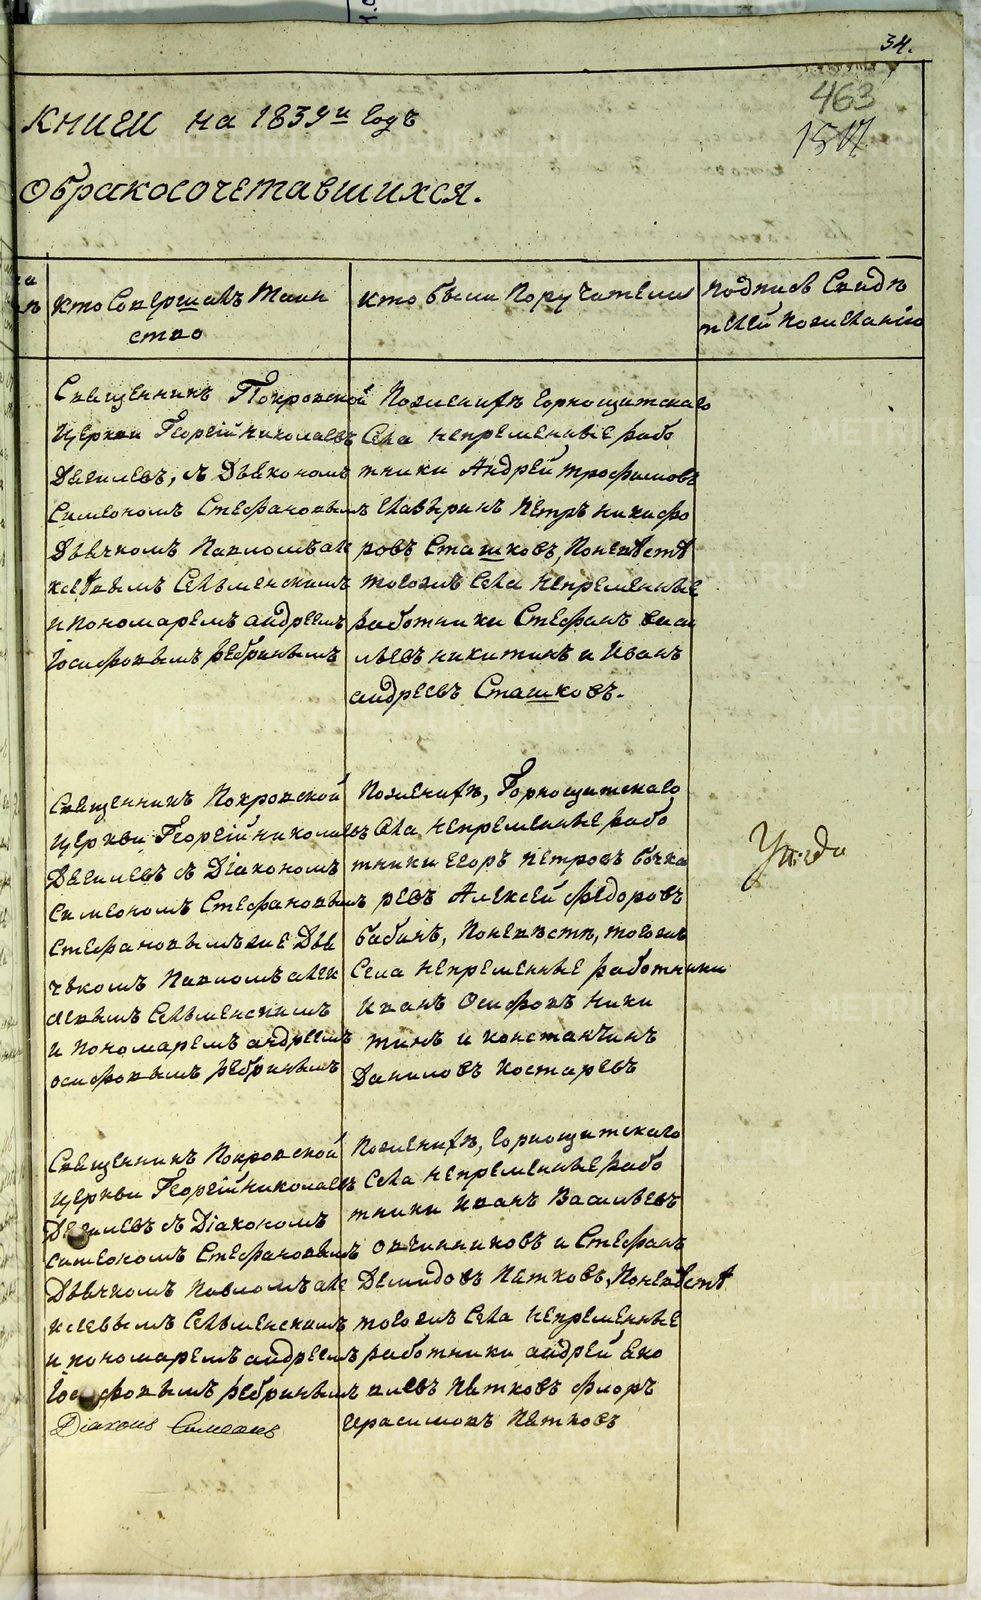 34.
463
1517
книги на 1839й годъ
обракосочетавшихся.
кто Совершалъ Таин
ство
кто были Поручители
подпись Свидѣ
телей пожеланію
Священникъ Покровской
Церкви Георгій Николаевъ
Дягилевъ, съ Дьякономъ
Симеономъ Стефановымъ
Дьячкомъ Павломъ але
ксѣевымъ Сельменскимъ
и пономаремъ андреемъ
Іосифовымъ ребринымъ
Поженихѣ горнощитскаго
Села непременные рабо
тники Андрей трофимовъ
елавѣринъ Петръ никифо
ровъ Сташковъ, Поневѣстѣ
тогожъ села непременные
работники Стефанъ васи
льевъ никитинъ и Иванъ
андреевъ Сташковъ.
Священникъ Покровской
церкви Георгій николаевъ
Дягилевъ съ Діакономъ
Симеономъ Стефановымъ
Стефановымъ же Дья
чькомъ Павломъ алек
сеевымъ Сельменскимъ
и Пономаремъ андреемъ
осифовымъ ребринымъ
Поженихѣ, Горнощитскаго
села непременные рабо
тники егоръ Петровъ бѣчка
ревъ Алексей федоровъ
бабинъ, Поневѣсте, тогожъ
Села непременные работники
иванъ Осифовъ ники
тинъ и константинъ
Даниловъ Костаревъ
Священникъ Покровской
церкви Георгій николаевъ
Дягилевъ съ Діакономъ
Симеономъ Стефановымъ
Дьячкомъ Павломъ але
ксеевымъ Сельменскимъ
и пономаремъ андреемъ
Іосифовымъ ребринымъ
Діаконъ Симеонъ
Поженихѣ, горнощитскаго
села непременные рабо
тники иванъ Васильевъ
овчинниковъ и Стефанъ
Демидовъ Пятковъ, Поневѣстѣ
тогожъ села непременные
работники андрей Яко
влевъ Пятковъ флоръ
герасимовъ Пятковъ